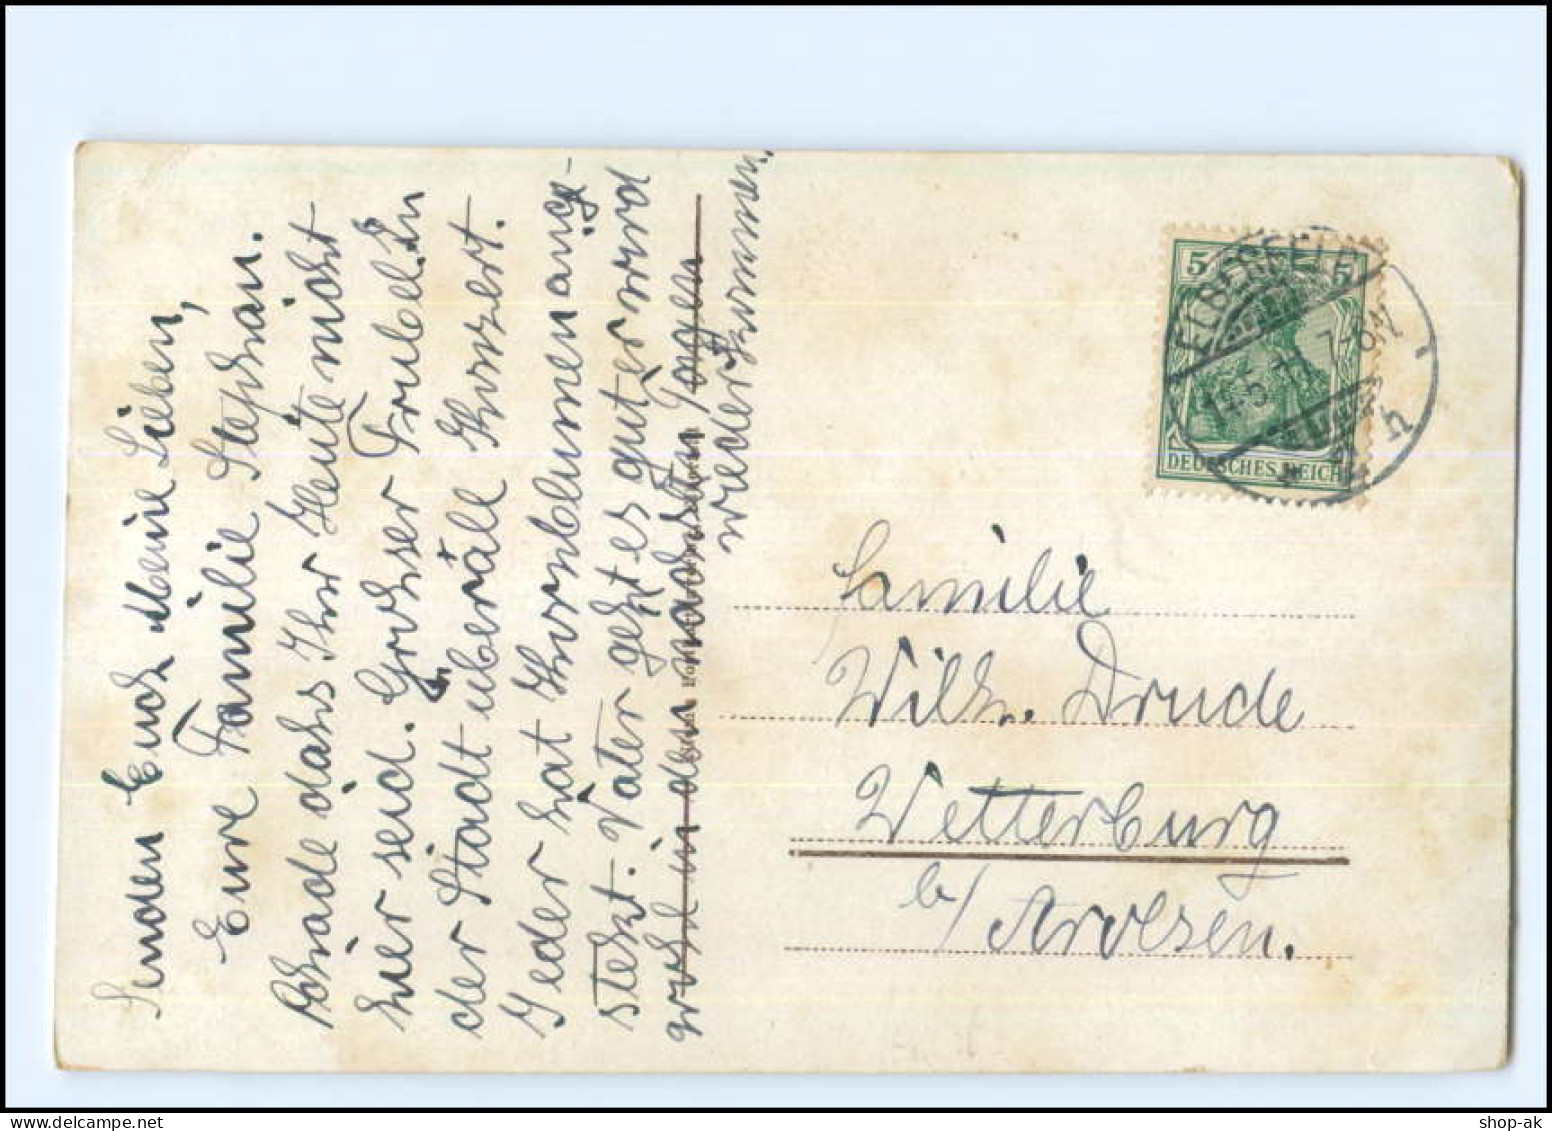 Senden Euch Meine Lieben,
Eure Familie Stephan.
Schade dahs Ihr Heute nicht
hier seid. Grohser Trubel. In
der Stadt überall Konzert.
Jeder hat Kornblumen ange-
steckt. Vater geht es gut er wird
wohl in den nächsten Tagen
wiederkommen.
5 5
DEUTSCHES REICH
ELBERFELD
Familie
Wilh. Drude
Wetterburg
b/ Arolsen.
shop-ak